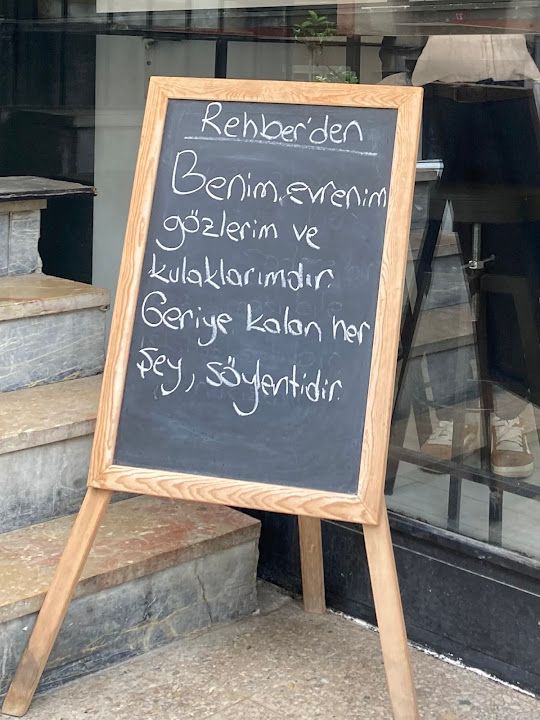 Rehber'den
Benim, evrenim
gözlerim ve
kulaklarımdır.
Geriye kalan her
şey, söylentidir.